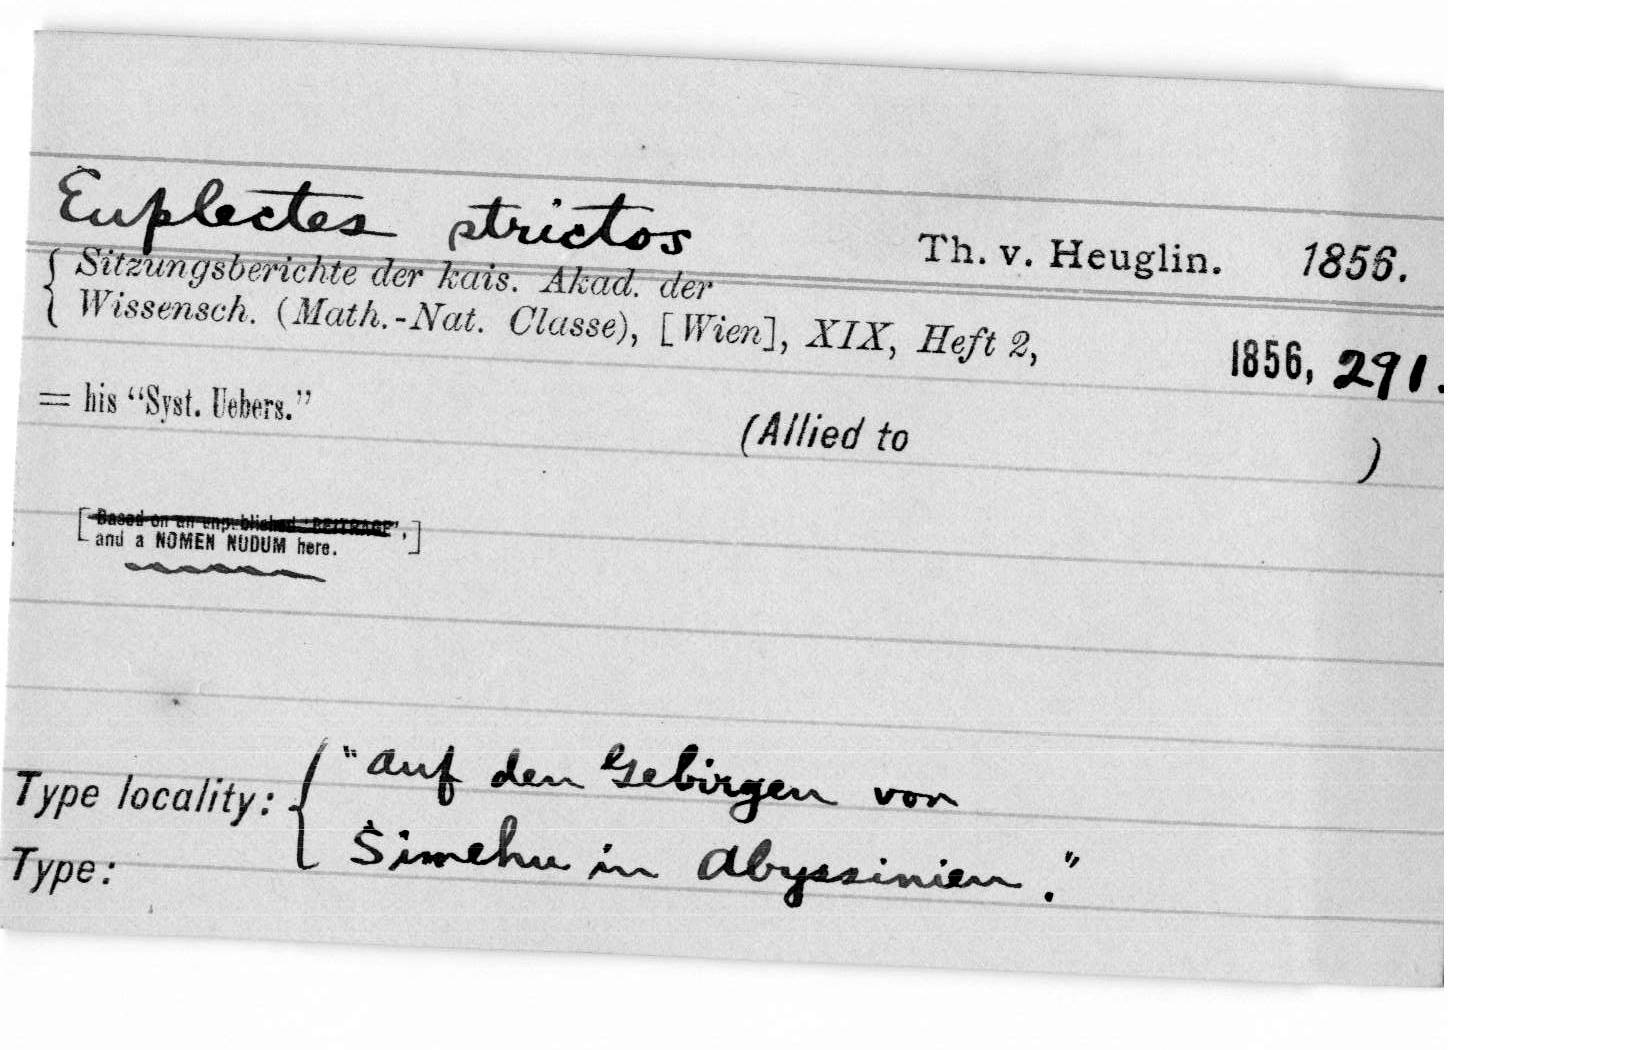 Euplectes strictos Th. v. Heuglin. 1856.
{ Sitzungsberichte der kais. Akad. der
Wissensch. (Math.-Nat. Classe), [Wien], XIX, Heft 2, 1856, 291.
= his "Syst. Uebers."
(Allied to )
[Based on an unpublished 'BEITRAGE',
and a NOMEN NUDUM here.]
Type locality: { "auf den Gebirgen von
Simehu in Abyssinien."
Type: